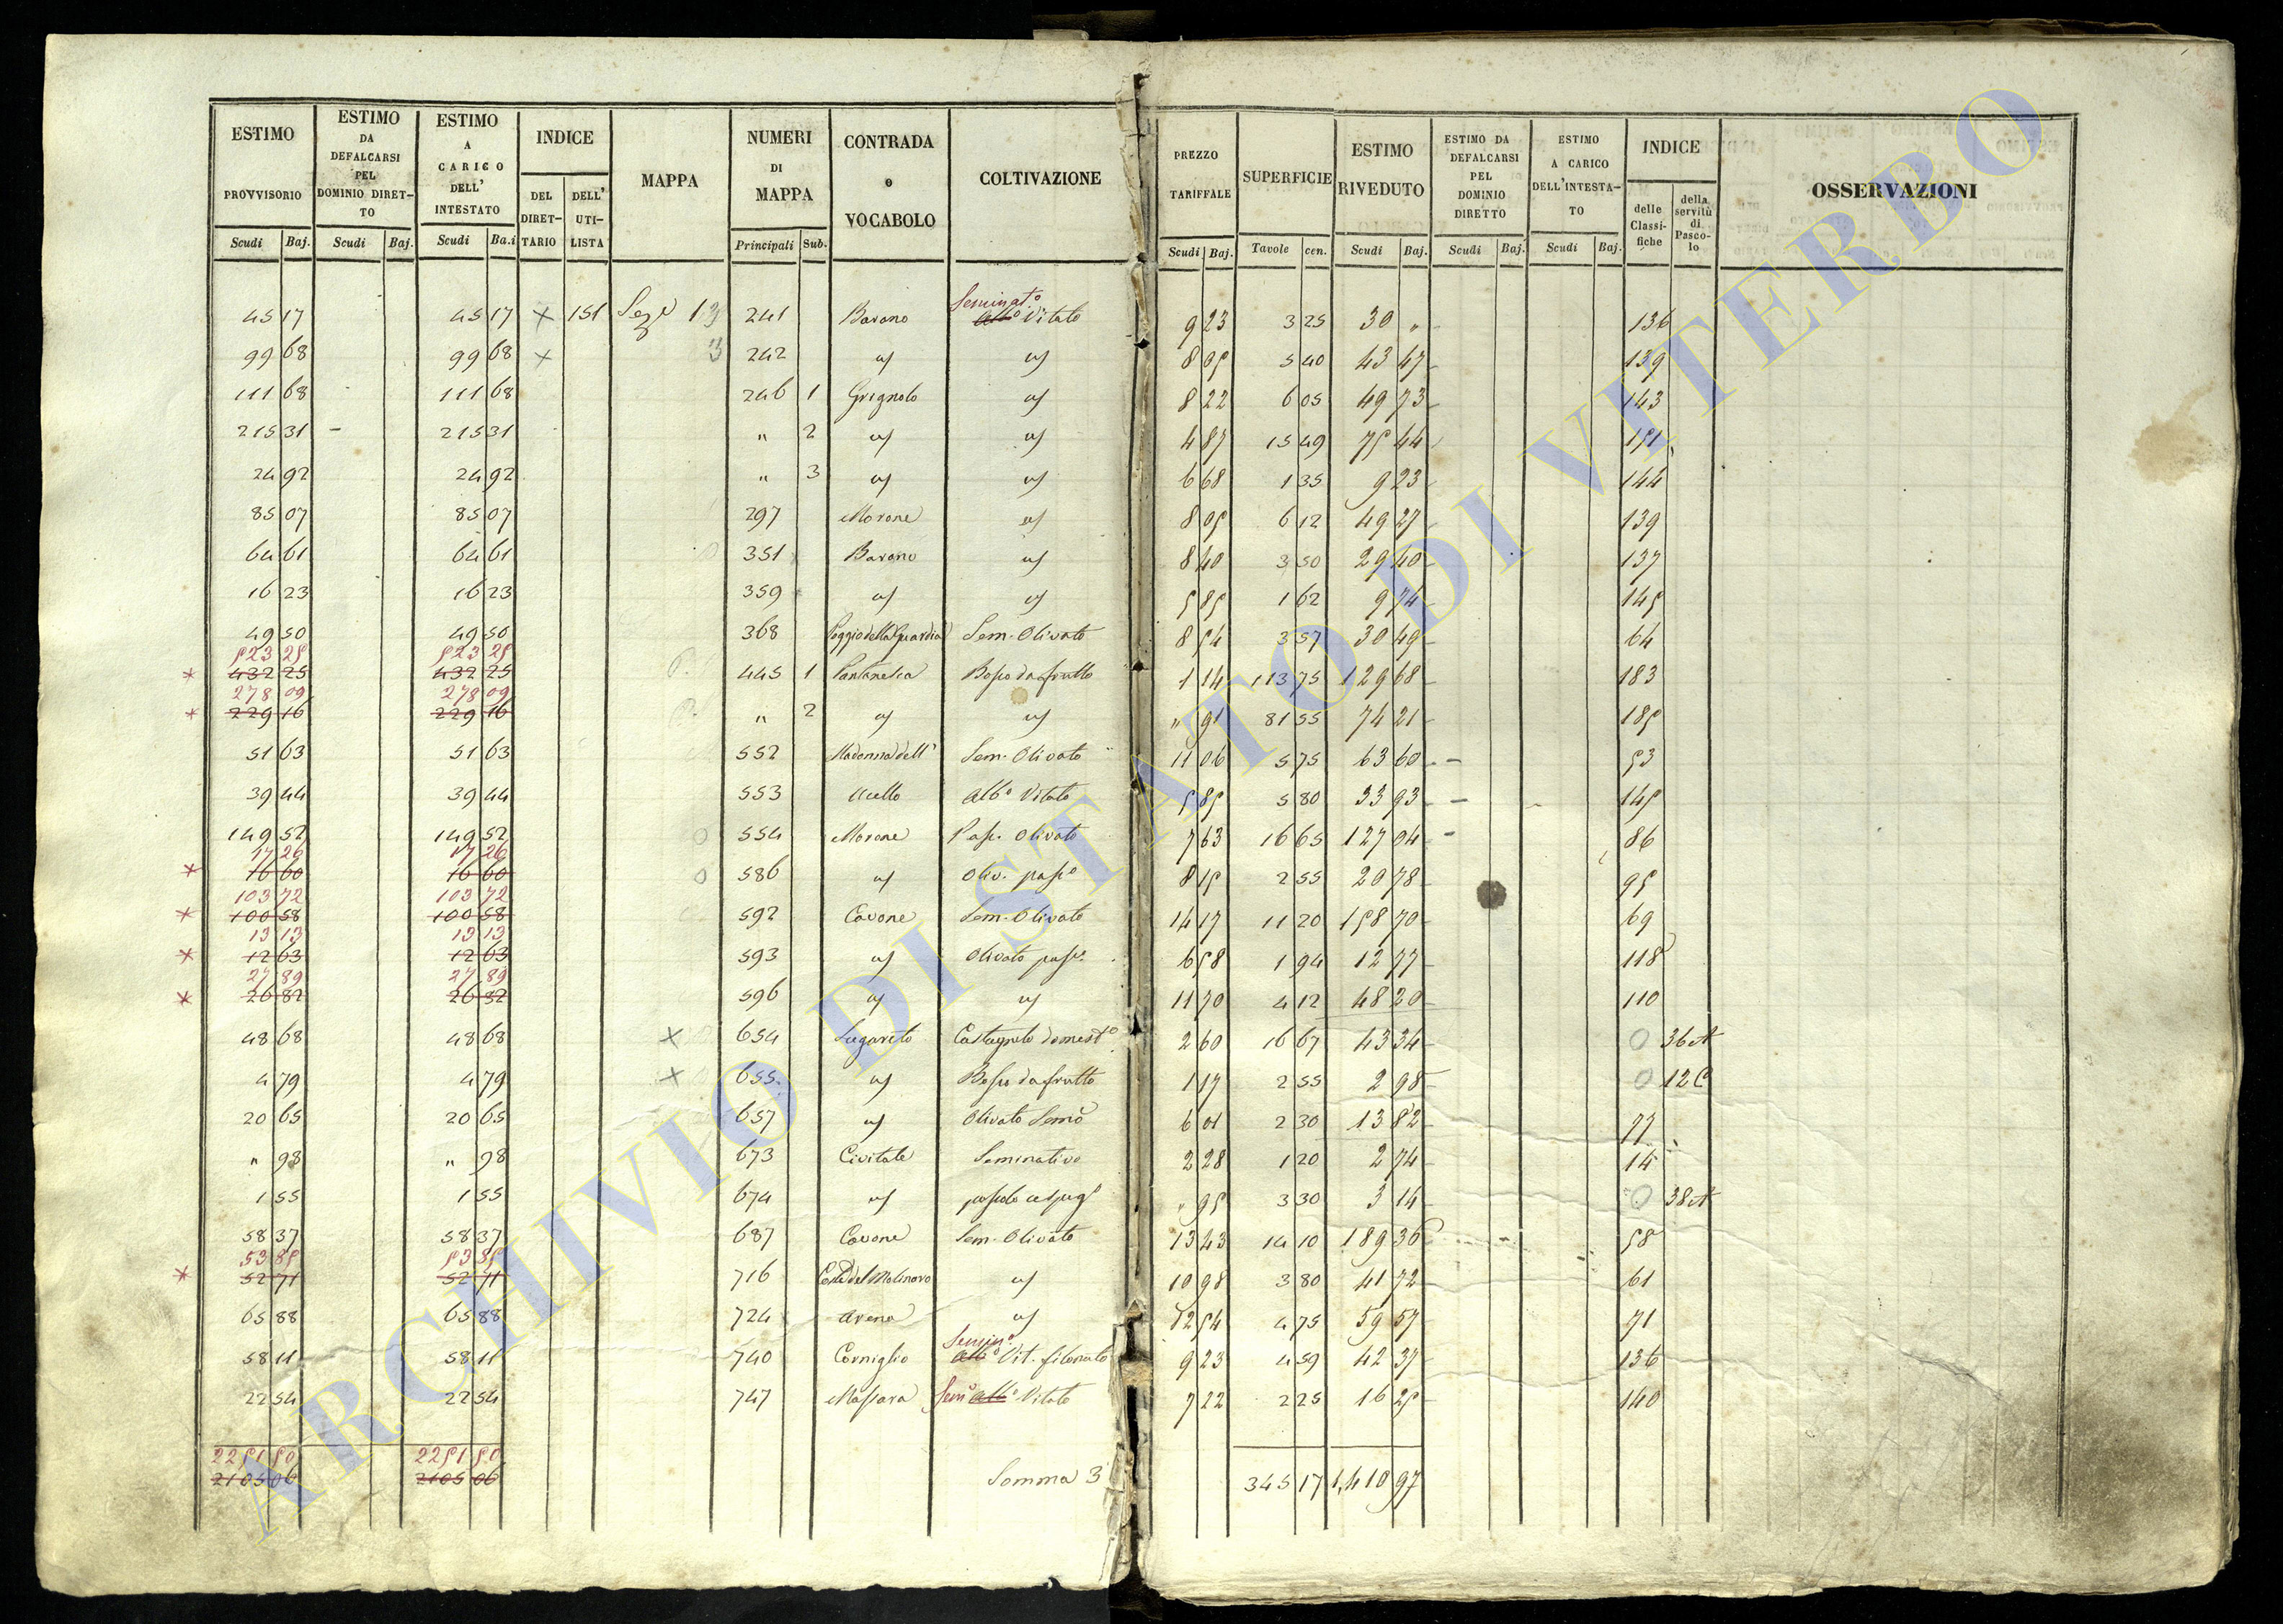 ESTIMO PROVVISORIO Scudi Baj.
ESTIMO DA DEFALCARSI PEL DOMINIO DIRETTO Scudi Baj.
ESTIMO A CARICO DELL' INTESTATO Scudi Ba.i
INDICE DEL DIRETTARIO DELL' UTILISTA
MAPPA
NUMERI DI MAPPA Principali Sub.
CONTRADA o VOCABOLO
COLTIVAZIONE
PREZZO TARIFFALE Scudi Baj.
SUPERFICIE Tavole cen.
ESTIMO RIVEDUTO Scudi Baj.
ESTIMO DA DEFALCARSI PEL DOMINIO DIRETTO Scudi Baj.
ESTIMO A CARICO DELL'INTESTATO Scudi Baj.
INDICE delle Classifiche della servitù di Pascolo
OSSERVAZIONI
45 17 45 17 × 151 Seze 13 241 Barano Seminato Albo Vitato 9 23 3 25 30 " 136
99 68 99 68 × 3 242 8 05 5 40 43 47 139
111 68 111 68 246 1 Grignolo 8 22 6 05 49 73 143
215 31 215 31 " 2 4 87 15 49 75 44 151
24 92 24 92 " 3 6 68 1 35 9 23 144
85 07 85 07 297 Morone 8 05 6 12 49 27 139
64 61 64 61 351 Barano 8 40 3 50 29 40 137
16 23 16 23 359 5 85 1 62 9 74 145
49 50 49 50 368 Poggio della Guardia Sem. Olivato 8 54 3 57 30 49 64
523 25 523 25
* 432 25 432 25 445 1 Bosco da frutto 1 14 113 75 129 68 183
278 09 278 09
* 229 16 229 16 " 2 " 91 81 55 74 21 185
51 63 51 63 552 Madonna dell' Sem. Olivato 11 06 5 75 63 60 53
39 44 39 44 553 Ucello Albo Vitato 5 85 5 80 33 93 145
149 52 149 52 0 554 Morone Pasc. Olivato 7 63 16 65 127 04 86
17 26 17 26
* 16 60 16 60 0 586 Oliv. pasco 8 15 2 55 20 78 95
103 72 103 72
* 100 58 100 58 592 Cavone Sem. Olivato 14 17 11 20 158 70 69
13 13 13 13
* 12 63 12 63 593 Olivato pasc. 6 58 1 94 12 77 118
27 89 27 89
* 26 82 26 82 596 11 70 4 12 48 20 110
48 68 48 68 × 654 Sugareto Castagneto domesto 2 60 16 67 43 34 0 36 A
4 79 4 79 × 655 Bosco da frutto 1 17 2 55 2 98 0 12 C
20 65 20 65 657 Olivato Semo 6 01 2 30 13 82 77
" 98 " 98 673 Civitale Seminativo 2 28 1 20 2 74 14
1 55 1 55 674 pascolo cespugo " 95 3 30 3 14 0 38 A
58 37 58 37 687 Cavone Sem. Olivato 13 43 14 10 189 36 58
53 85 53 85
* 52 71 52 71 716 del Molinaro 10 98 3 80 41 72 61
65 88 65 88 724 Arena 12 54 4 75 59 57 71
58 11 58 11 740 Corniglio Semino Albo Vit. filonato 9 23 4 59 42 37 136
22 54 22 54 747 Massara Semo Albo Vitato 7 22 2 25 16 25 140
2251 50 2251 50
2105 06 2105 06 Somma 3 345 17 1,410 97
ARCHIVIO DI STATO DI VITERBO